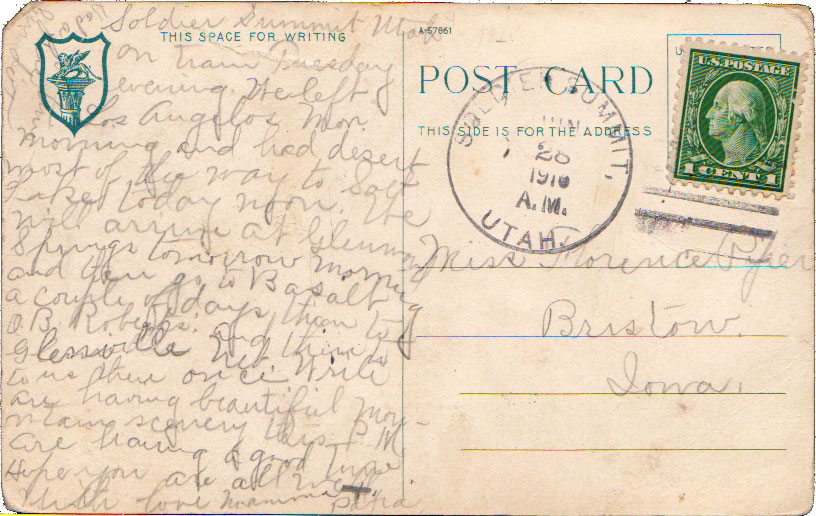 Soldier Summit Utah
THIS SPACE FOR WRITING
on train Tuesday
evening. We left
Los Angelos Mon
morning and had desert
most of the way to Salt
Lake today noon. We
will arrive at Glenwood
Springs tomorrow morning
and then go to Basalt
a couple of days then to
O.B. Roberts. And
to us there once. Write
are having beautiful moun-
tain scenery this P.M.
are having a good time
Hope you are all well
With love Mamma + Papa
A-57861
POST CARD
THIS SIDE IS FOR THE ADDRESS
U.S. POSTAGE
1 CENT 1
SOLDIER SUMMIT,
JUN
28
1916
A.M.
UTAH
Miss Florence
Bristow.
Iowa.